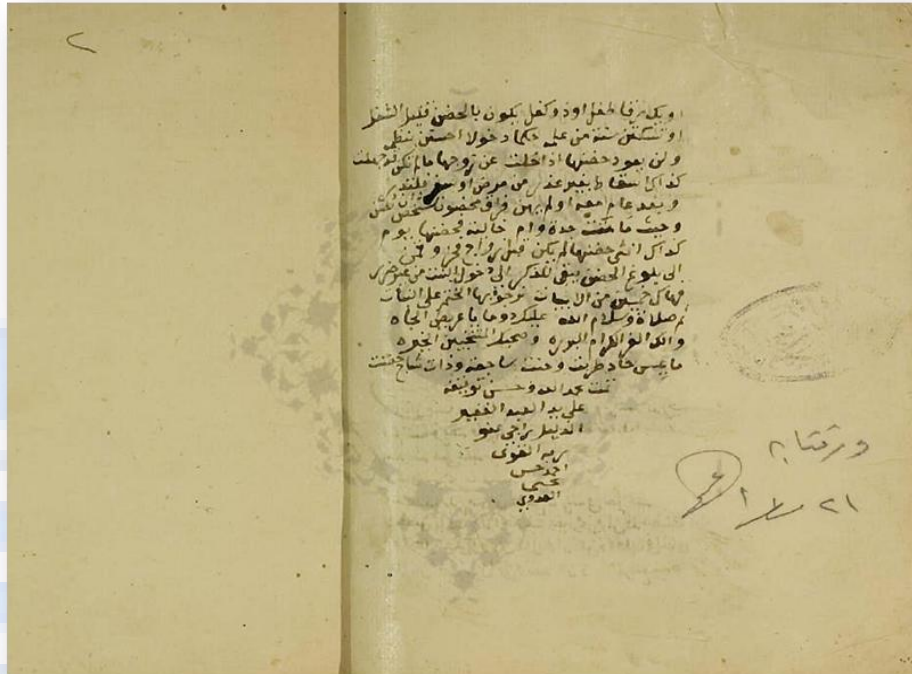 ٢
او يك رقا طفل اوذ وكفل يكون بالحضن قليل الشغل
او تسكن ستة من على حكما دخولا احسنن
ولن يعود حضنها اذا خلت عن زوجها ما لم تكن قد جهلت
كذاك اسقاط بغير عذر من مرض او سفر
وبعد عام معه او لم يهن فراق محضون
وحيث ماتت جدة وام خالية فحضنها يوم
كذاك انثى حضنها لم يكن قبل زواج
الى بلوغ الحضن يبقى للذكر الى دخول البنت من غير ضرر
فهاك خمسين من الابيات نرجو بها الختم على الثبات
ثم صلاة وسلام الله عليك دوما يا عريض الجاه
والك الغر الكرام البرره وصحبك المنتخبين الخيره
ما عيس حاد طربت وحنت ساجعة وذات
تمت بحمد الله وحسن توفيقه
على يد العبد الفقير
الذليل راجى عفو
ربه القوى
احمد حسن
العدوي
ورقتان
٢١ سطرا